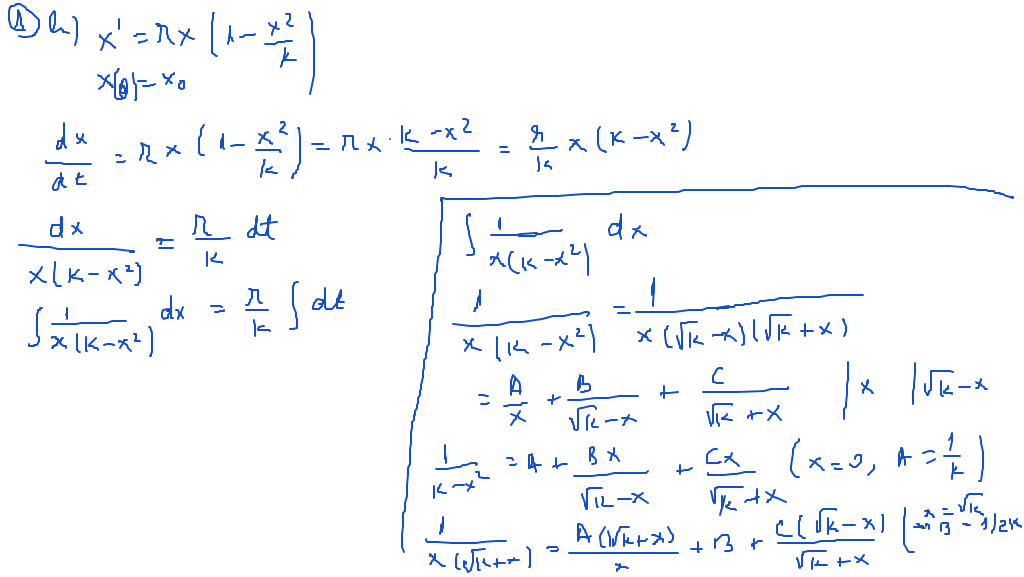 ① b) x' = rx (1 - x²/k)
x(0) = x₀
dx/dt = rx (1 - x²/k) = rx · (k - x²)/k = r/k x (k - x²)
dx/(x(k - x²)) = r/k dt
∫ 1/(x(k - x²)) dx = r/k ∫ dt
∫ 1/(x(k - x²)) dx
1/(x(k - x²)) = 1/(x(√k - x)(√k + x))
= A/x + B/(√k - x) + C/(√k + x) | x | √k - x
1/(k - x²) = A + Bx/(√k - x) + Cx/(√k + x) (x = 0, A = 1/k)
1/(x(√k + x)) = A(√k - x)/x + B + C(√k - x)/(√k + x) (x = √k
B = 1/2k